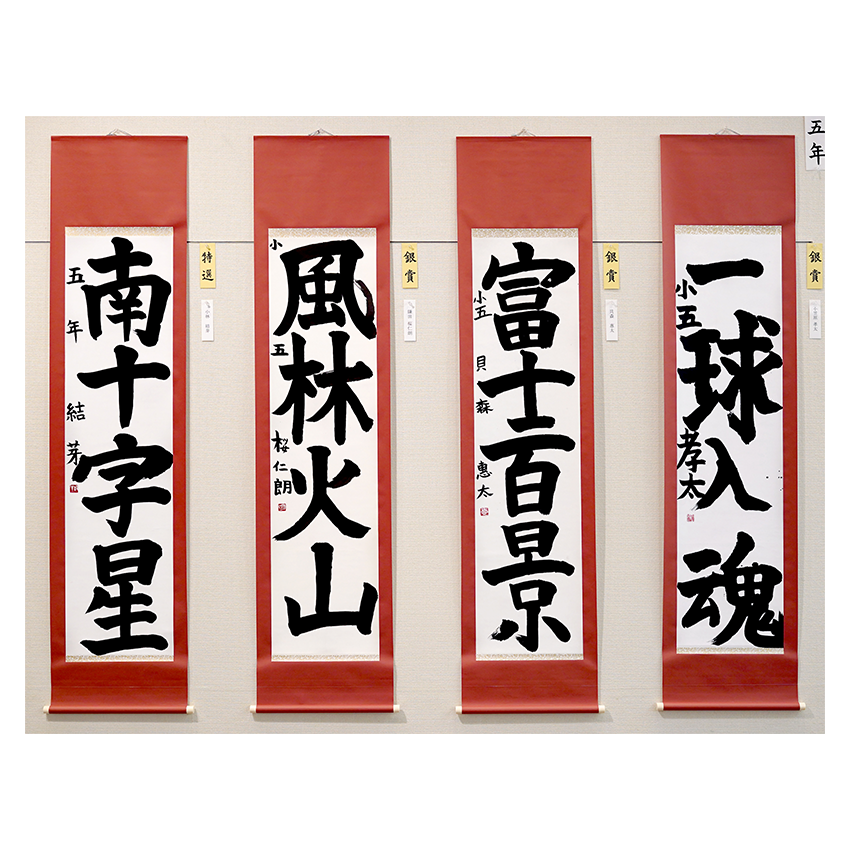 五年
一球入魂
小五 孝太
銀賞
富士百景
小五 貝森 惠太
銀賞
風林火山
小五 桜仁朗
銀賞
南十字星
五年 結芽
特選